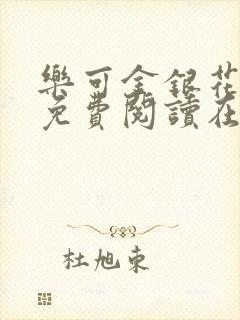 樂可金銀花
免費閱讀在
杜旭東